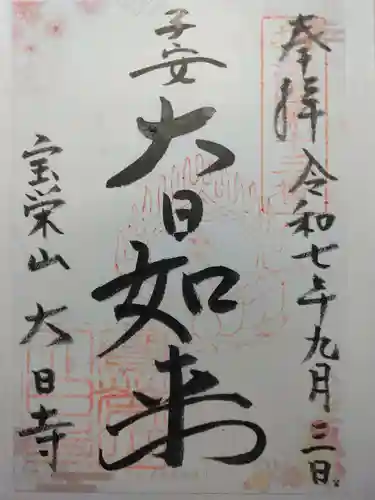 奉拝 令和七年九月三日
子安
大日如来
宝栄山 大日寺